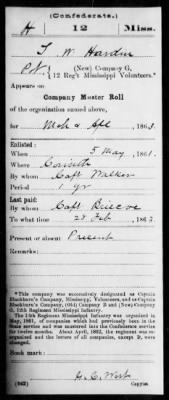 (Confederate.)
H 12 Miss.
T. W. Hardin
Pvt. (New) Company G,
12 Reg't Mississippi Volunteers.*
Appears on
Company Muster Roll
of the organization named above,
for Mch & Apl, 1863.
Enlisted:
When 5 May, 1861.
Where Corinth
By whom Capt Walker
Period 1 yr
Last paid:
By whom Capt Briscoe
To what time 28 Feb, 1863
Present or absent Present
Remarks:
*This company was successively designated as Captain
Blackburn's Company, Mississippi Volunteers, and as Captain
Blackburn's Company, (Old) Company B and (New) Company
G, 12th Regiment Mississippi Infantry.
The 12th Regiment Mississippi Infantry was organized in
May, 1861, of companies which had previously been in the
State service and was mustered into the Confederate service
for twelve months. About April, 1862, the regiment was re-
organized and the letters of all companies, except D, were
changed.
Book mark:
(642)
Copyist.